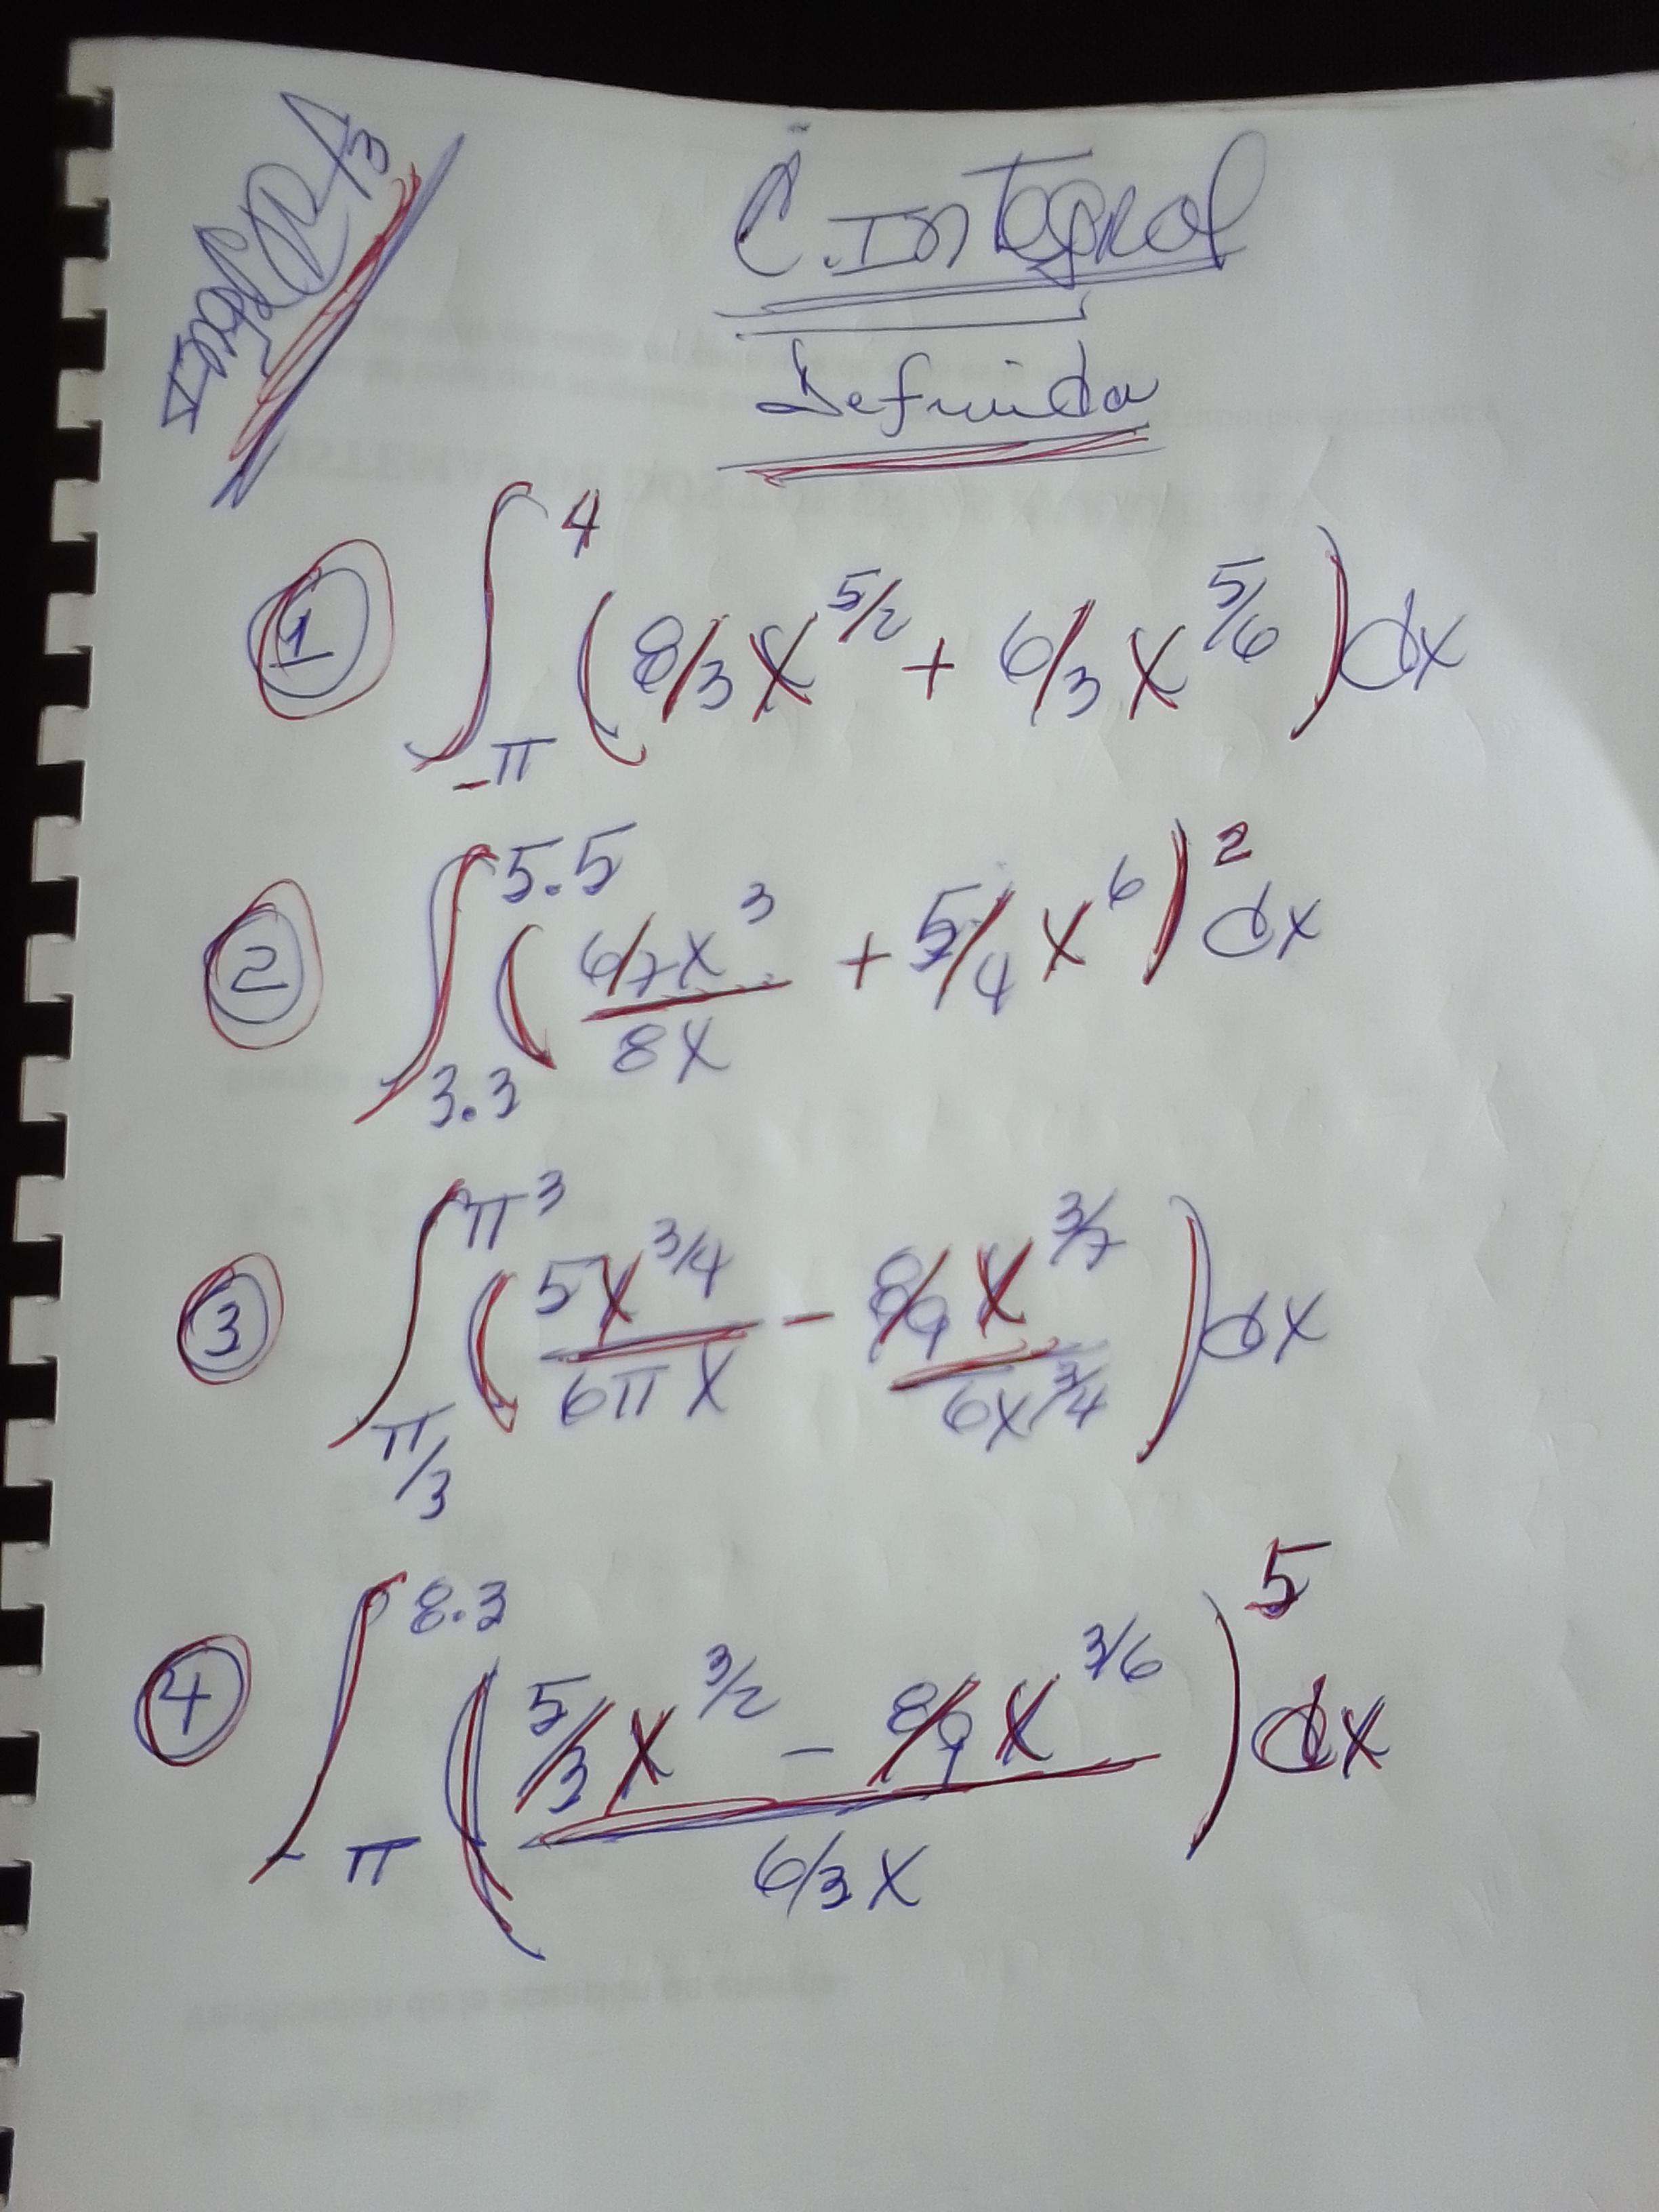 C. Integral
Definida
① ∫_{-π}^{4} (8/3 x^{5/2} + 6/3 x^{5/6}) dx
② ∫_{3.3}^{5.5} ((6/7 x^3)/(8x) + 5/4 x^6)^2 dx
③ ∫_{π/3}^{π^3} ((5x^{3/4})/(6πx) - (8/9 x^{3/7})/(6x^{3/4})) dx
④ ∫_{-π}^{8.3} ((5/3 x^{3/2} - 8/9 x^{3/6})/(6/3 x))^5 dx